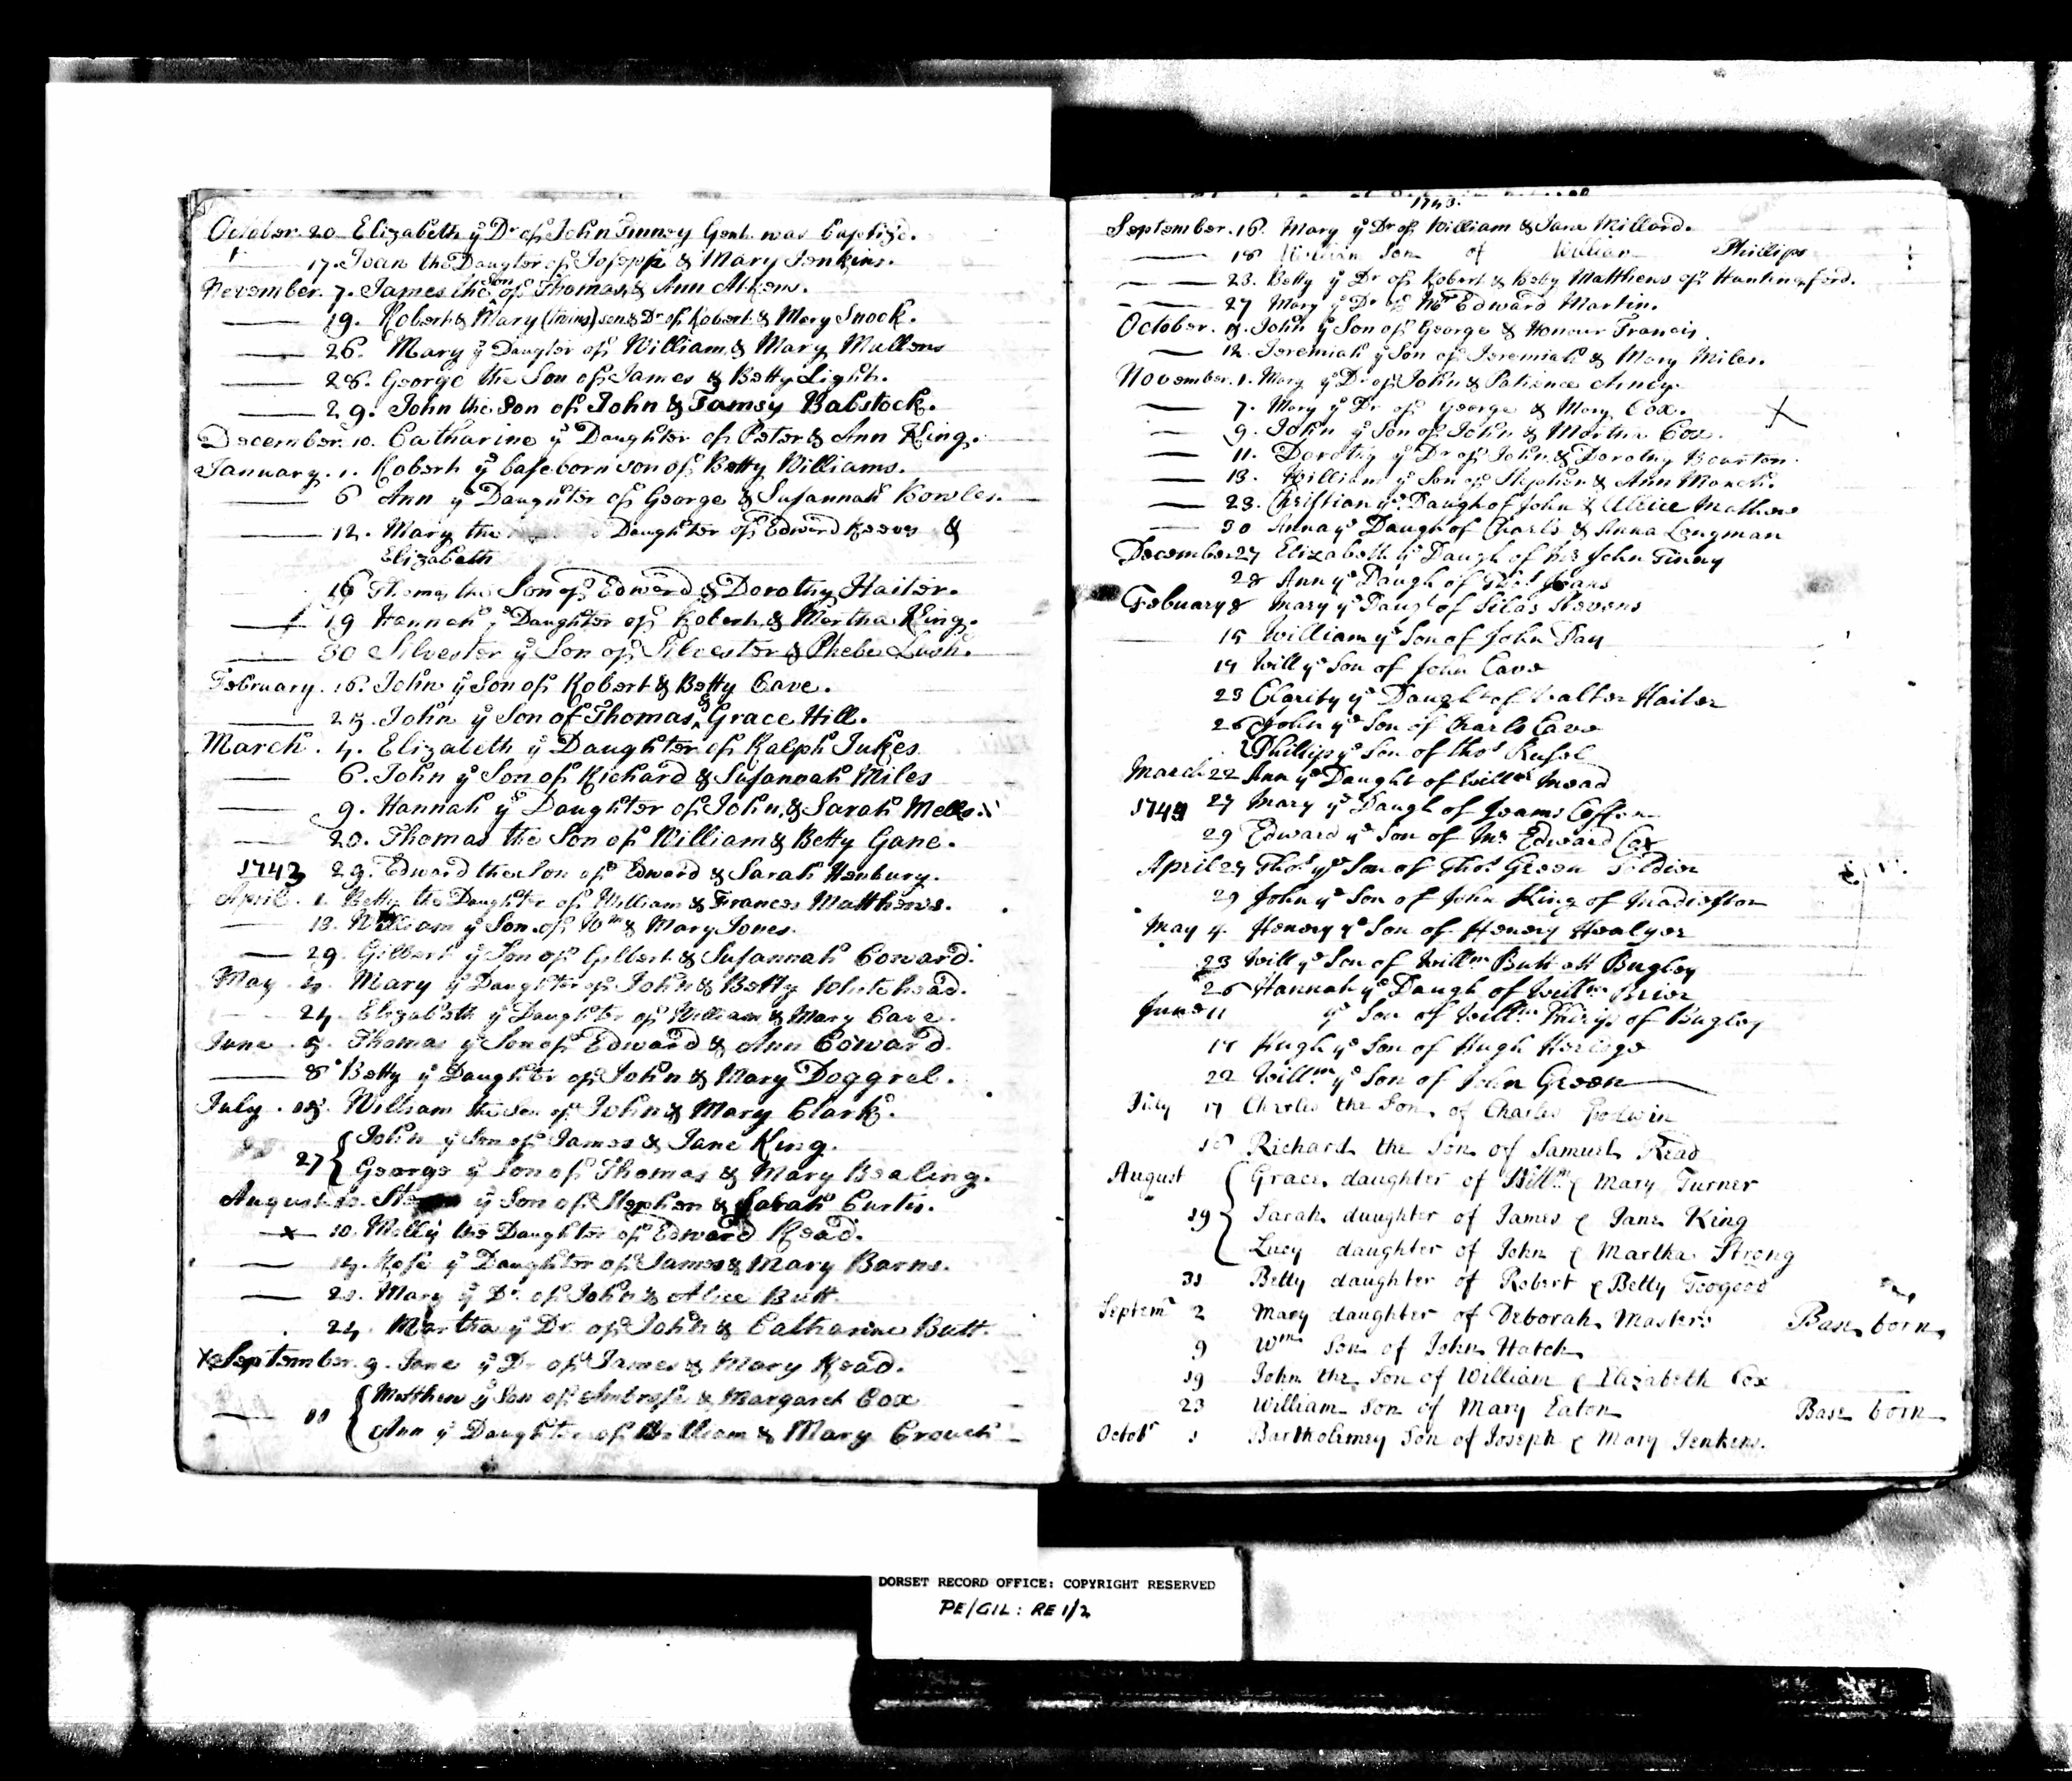 October. 20 Elizabeth ye Dr of John Tinney Gent. was baptize.
17. Joan the Daugter of Joseph & Mary Jenkins.
November. 7. James the Son of Thomas & Ann
19. Robert & Mary (twins) son & Dr of Robert & Mary Snook.
26. Mary ye Daugter of William & Mary Mullens
28. George the Son of James & Betty Light.
29. John the Son of John & Tamsy Babstock.
December. 10. Catharine ye Daughter of Peter & Ann King.
January. 1. Robert ye baseborn son of Betty Williams.
6 Ann ye Daughter of George & Susannah Bowles.
12. Mary the Daughter of Edward Reeves &
Elizabeth
16 Thomas the Son of Edward & Dorothy Haiter.
19 Hannah ye Daughter of Robert & Martha King.
30 Silvester ye Son of Silvester & Phebe Lush.
February. 16. John ye Son of Robert & Betty Cave.
25. John ye Son of Thomas & Grace Hill.
March. 4. Elizabeth ye Daughter of Ralph Jukes
6. John ye Son of Richard & Susannah Miles
9. Hannah ye Daughter of John & Sarah Mells.
20. Thomas the Son of William & Betty Gane.
1743 29. Edward the Son of Edward & Sarah Henbury.
April. 1. Betty the Daughter of William & Frances Matthews.
13. William ye Son of Wm & Mary Jones.
29. Gilbert ye Son of Gilbert & Susannah Coward.
May. 4. Mary ye Daughter of John & Betty Whitehead.
24. Elizabeth ye Daughter of William & Mary Cave.
June. 5. Thomas ye Son of Edward & Ann Coward.
8 Betty ye Daughter of John & Mary Doggrel.
July. William the Son of John & Mary Clark.
John ye Son of James & Jane King.
27 George ye Son of Thomas & Mary Bealing.
August ye Son of Stephen & Sarah Curtis.
x 10. Molly the Daughter of Edward Read.
14. Rose ye Daughter of James & Mary Barns.
Mary ye Dr. of John & Alice Butt.
24. Martha ye Dr of John & Catharine Butt.
September. 9. Jane ye Dr of James & Mary Read.
Matthew ye Son of Ambrose & Margaret Cox
11 Ann ye Daughter of William & Mary Crouch
1743.
September. 16. Mary ye Dr of William & Jane Millard.
18 William Son of William Phillips
23. Betty ye Dr of Robert & Betty Matthews of Huntingford.
27 Mary ye Dr of Mr Edward Martin.
October. John ye Son of George & Honour Francis.
12. Jeremiah ye Son of Jeremiah & Mary Miles.
November. 1. Mary ye Dr of John & Patience
7. Mary ye Dr of George & Mary Cox. X
9. John ye Son of John & Martha Cox.
11. Dorothy ye Dr of John & Dorothy Bourton.
13. William ye Son of Stephen & Ann March.
23. Christian ye Daugh of John & Allice Mathews
30 Anna ye Daugh of Charls & Anna Longman
December 27 Elizabeth ye Daugh of Mr John Tinny
28 Ann ye Daugh of Thos Jeans
Febuary 8 Mary ye Daugh of Silas Stevens
15 William ye Son of John Day
19 Will ye Son of John Cave
23 Clarity ye Daught of Walter Haiter
26 John ye Son of Charls Cave
Phillip ye Son of Thos Rusel
March 22 Ann ye Daught of Willm Mead
1744 27 Mary ye Daugh of Jeams
29 Edward ye Son of Mr Edward Cox
April 27 Thos ye Son of Thos Green Soldier
29 John ye Son of John King of
May 4. Henery ye Son of Henery
23 Will ye Son of Willm Butt att Bugley
26 Hannah ye Daugh of Willm Brier
June 11 ye Son of Willm of Bugley
17 Hugh ye Son of Hugh
22 Willm ye Son of John Green
July 17 Charles the Son of Charles Godwin
18 Richard the Son of Samuel Read
August Grace daughter of Willm & Mary Turner
19 Sarah daughter of James & Jane King
Lucy daughter of John & Martha Strong
31 Betty daughter of Robert & Betty Toogood
Septemr 2 Mary daughter of Deborah Masters Base born
9 Wm Son of John Hatch
19 John the Son of William & Elizabeth Cox
23 William Son of Mary Eaton Base born
Octobr 1 Bartholemey Son of Joseph & Mary Jenkens.
DORSET RECORD OFFICE: COPYRIGHT RESERVED
PE/GIL: RE 1/2